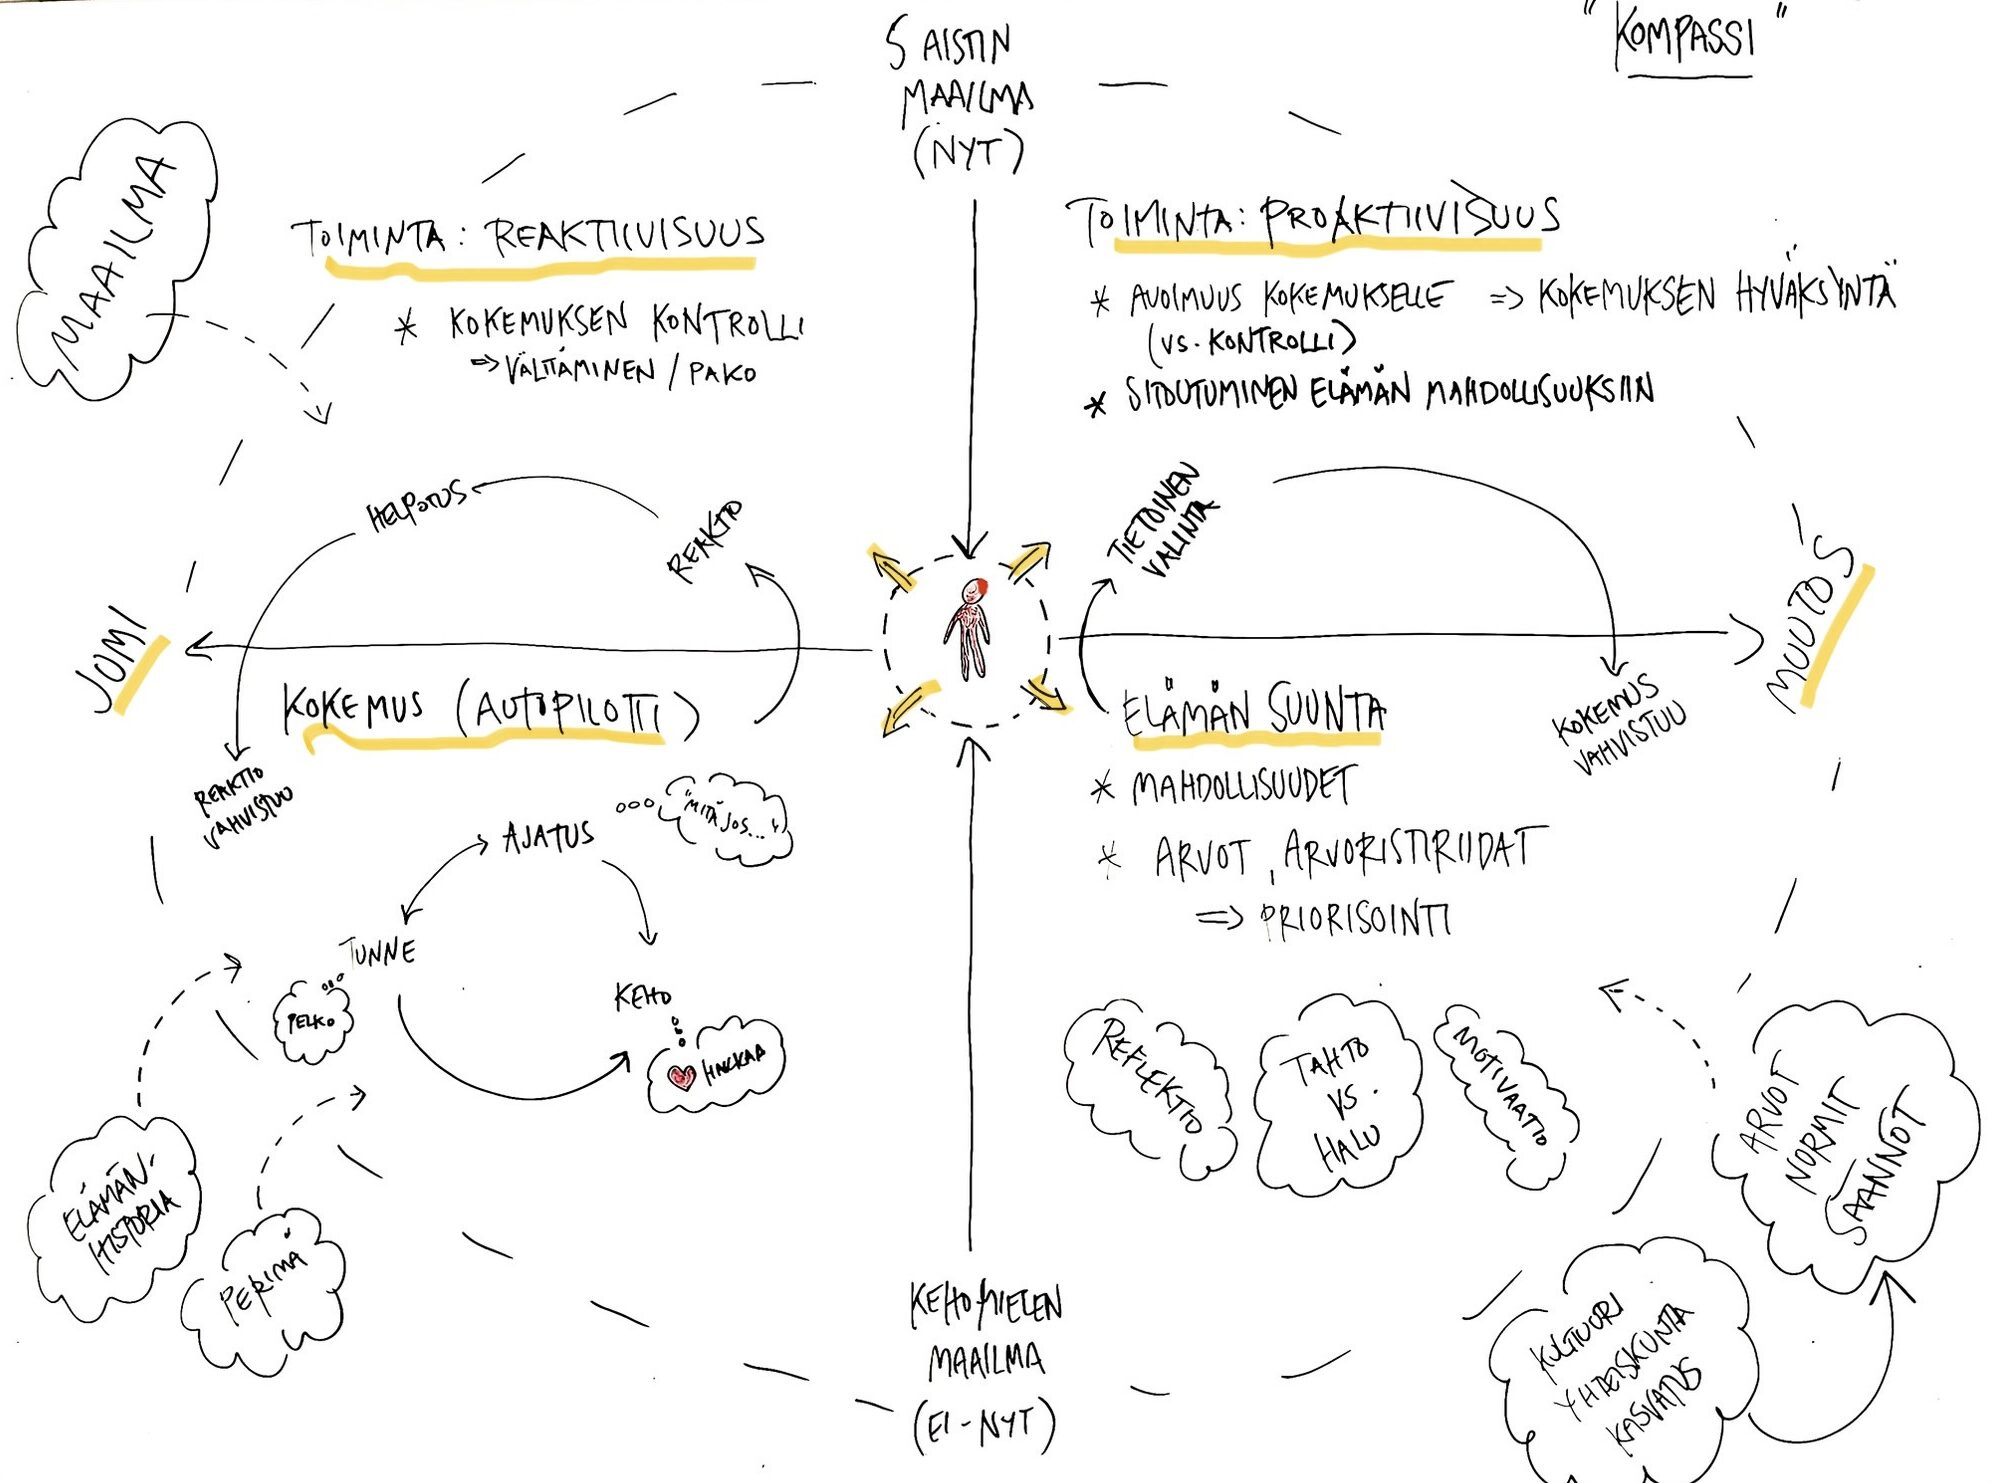 "KOMPASSI"
5 AISTIN
MAAILMA
(NYT)
MAAILMA
TOIMINTA: REAKTIIVISUUS
* KOKEMUKSEN KONTROLLI
=> VÄLTTÄMINEN / PAKO
TOIMINTA: PROAKTIIVISUUS
* AVOIMUUS KOKEMUKSELLE => KOKEMUKSEN HYVÄKSYNTÄ
(VS. KONTROLLI)
* SITOUTUMINEN ELÄMÄN MAHDOLLISUUKSIIN
HELPOTUS
REAKTIO
TIETOINEN
VALINTA
JUMI
MUUTOS
KOKEMUS (AUTOPILOTTI)
REAKTIO
VAHVISTUU
ELÄMÄN SUUNTA
* MAHDOLLISUUDET
* ARVOT, ARVORISTIRIIDAT
=> PRIORISOINTI
KOKEMUS
VAHVISTUU
AJATUS
"MITÄ JOS..."
TUNNE
PELKO
KEHO
HAKKAA
REFLEKTIO
TAHTO
VS.
HALU
MOTIVAATIO
ARVOT
NORMIT
SÄÄNNÖT
ELÄMÄN-
HISTORIA
PERIMÄ
KEHO-MIELEN
MAAILMA
(EI-NYT)
KULTTUURI
YHTEISKUNTA
KASVATUS